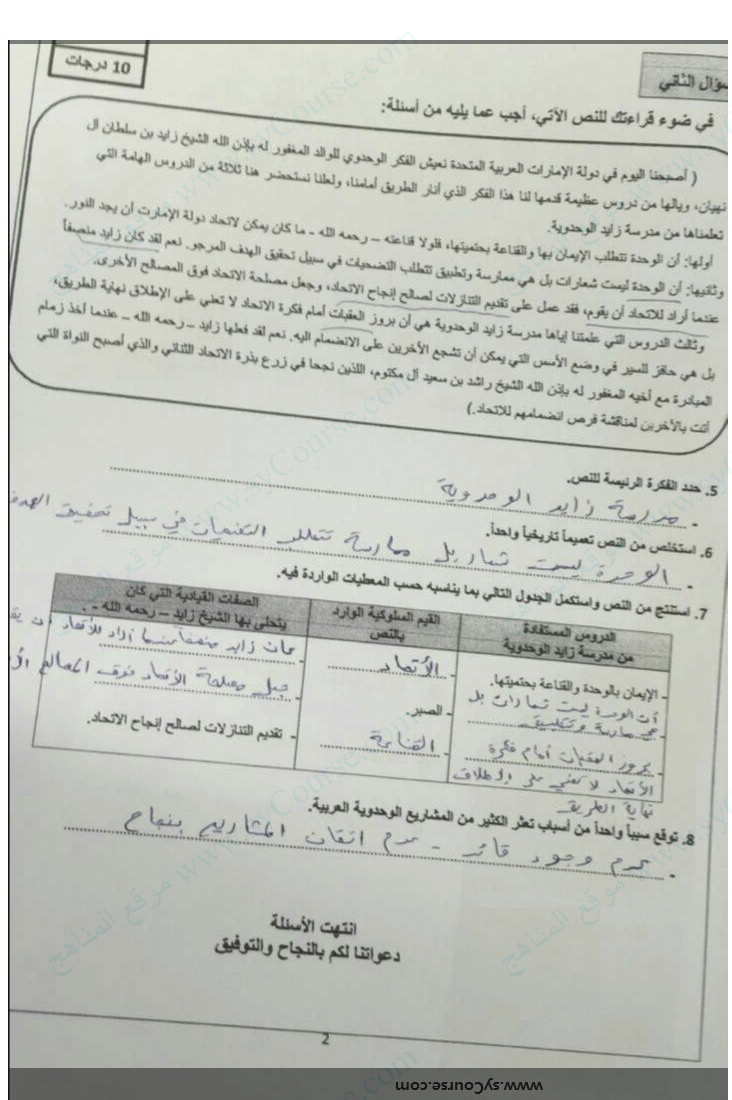 10 درجات
سؤال الثاني
في ضوء قراءتك للنص الآتي، أجب عما يليه من أسئلة:
( أصبحنا اليوم في دولة الإمارات العربية المتحدة نعيش الفكر الوحدوي للوالد المغفور له بإذن الله الشيخ زايد بن سلطان آل
نهيان، ويالها من دروس عظيمة قدمها لنا هذا الفكر الذي أنار الطريق أمامنا، ولعلنا نستحضر هنا ثلاثة من الدروس الهامة التي
تعلمناها من مدرسة زايد الوحدوية.
أولها: أن الوحدة تتطلب الإيمان بها والقناعة بحتميتها، فلولا قناعته – رحمه الله - ما كان يمكن لاتحاد دولة الإمارت أن يجد النور.
وثانيها: أن الوحدة ليست شعارات بل هي ممارسة وتطبيق تتطلب التضحيات في سبيل تحقيق الهدف المرجو. نعم لقد كان زايد منصفاً
عندما أراد للاتحاد أن يقوم، فقد عمل على تقديم التنازلات لصالح إنجاح الاتحاد، وجعل مصلحة الاتحاد فوق المصالح الأخرى.
وثالث الدروس التي علمتنا إياها مدرسة زايد الوحدوية هي أن بروز العقبات أمام فكرة الاتحاد لا تعني على الإطلاق نهاية الطريق،
بل هي حافز للسير في وضع الأسس التي يمكن أن تشجع الأخرين على الانضمام اليه. نعم لقد فعلها زايد – رحمه الله – عندما أخذ زمام
المبادرة مع أخيه المغفور له بإذن الله الشيخ راشد بن سعيد آل مكتوم، اللذين نجحا في زرع بذرة الاتحاد الثنائي والذي أصبح النواة التي
أتت بالآخرين لمناقشة فرص انضمامهم للاتحاد.)
5. حدد الفكرة الرئيسة للنص.
- مدرسة زايد الوحدوية
6. استخلص من النص تعميماً تاريخياً واحداً.
- الوحدة ليست شعار بل ممارسة تتطلب التضحيات في سبيل تحقيق الهدف
7. استنتج من النص واستكمل الجدول التالي بما يناسبه حسب المعطيات الواردة فيه.
الدروس المستفادة
من مدرسة زايد الوحدوية
القيم السلوكية الوارد
بالنص
الصفات القيادية التي كان
يتحلى بها الشيخ زايد – رحمه الله - .
- الإيمان بالوحدة والقناعة بحتميتها.
أن الوحدة ليست شعارات بل
- هي ممارسة وتطبيق
- بروز العقبات أمام فكرة
الأتحاد لا تعني على الإطلاق
نهاية الطريق
- الأتحاد
- الصبر.
- القناعة
- كان زايد منصفاً عندما أراد للأتحاد أن
- جعل مصلحة الأتحاد فوق المصالح
- تقديم التنازلات لصالح إنجاح الاتحاد.
8. توقع سبباً واحداً من أسباب تعثر الكثير من المشاريع الوحدوية العربية.
- عدم وجود قائد - عدم اتقان المشاريع بنجاح
انتهت الأسئلة
دعواتنا لكم بالنجاح والتوفيق
2
www.syCourse.com
موقع المناهج www.syCourse.com